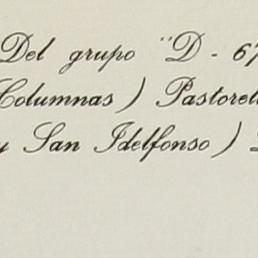 Del grupo "D - 67
Columnas) Pastorel
y San Idelfonso)